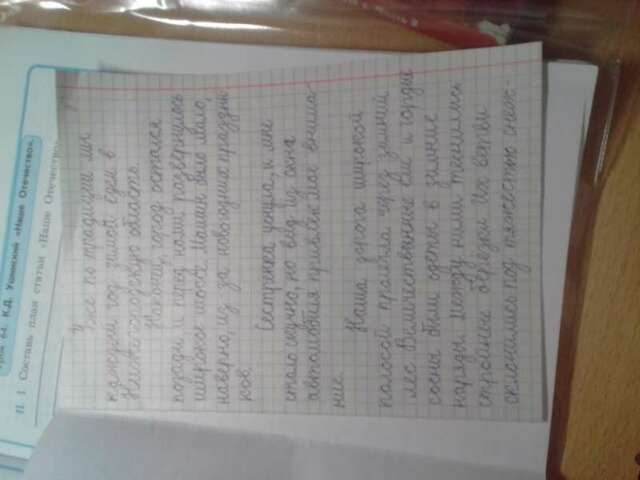 Урок 64. К.Д. Ушинский «Наше Отечество».
П. 1 Составь план статьи «Наше Отечество»
Уже по традиции мы
каждый год зимой едем в
Нижегородскую область.
Наконец, город остался
позади, и перед нами развернулось
широкое шоссе. Машин было мало,
наверно, из-за новогодних праздни
ков.
Сестрёнка уснула, и мне
стало скучно, но вид из окна
автомобиля привлек мое внима-
ние.
Наша дорога широкой
полосой пролегла через зимний
лес. Величественные ели и гордые
сосны были одеты в зимние
наряды. Между ними теснились
стройные берёзки. Их ветви
склонились под тяжестью снеж-